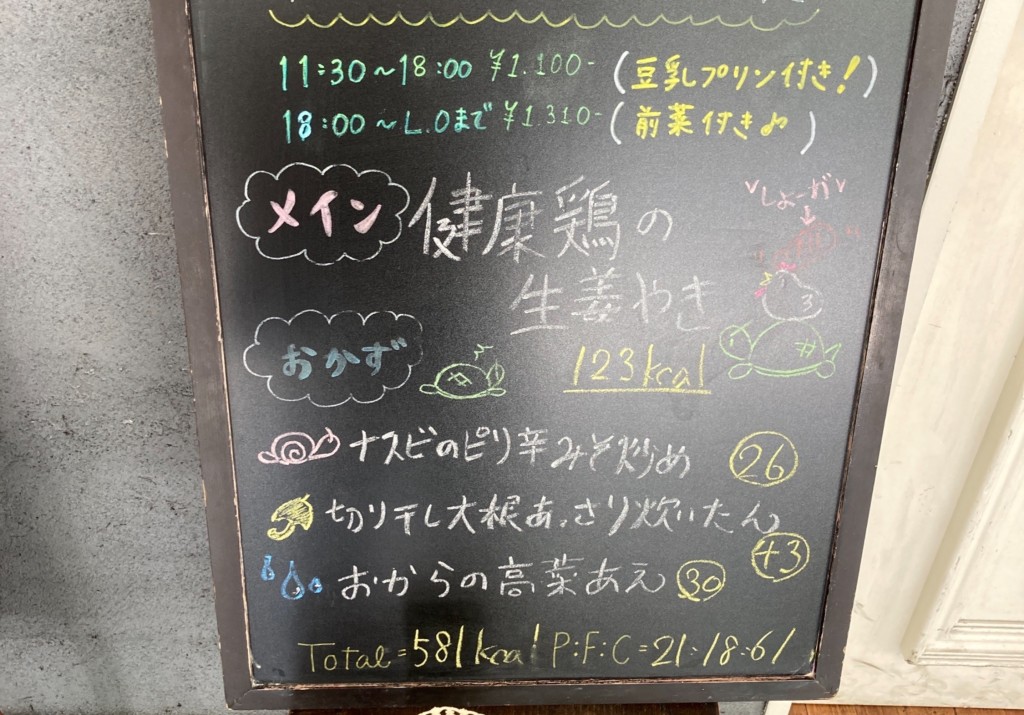 11:30～18:00 ¥1.100- (豆乳プリン付き!)
18:00～L.Oまで ¥1.310- (前菜付き♪)
メイン 健康鶏の
生姜やき
しょーが
おかず 123kcal
ナスビのピリ辛みそ炒め 26
切り干し大根あ.さり炊いたん 43
おからの高菜あえ 30
Total=581kcal P:F:C=21:18:61